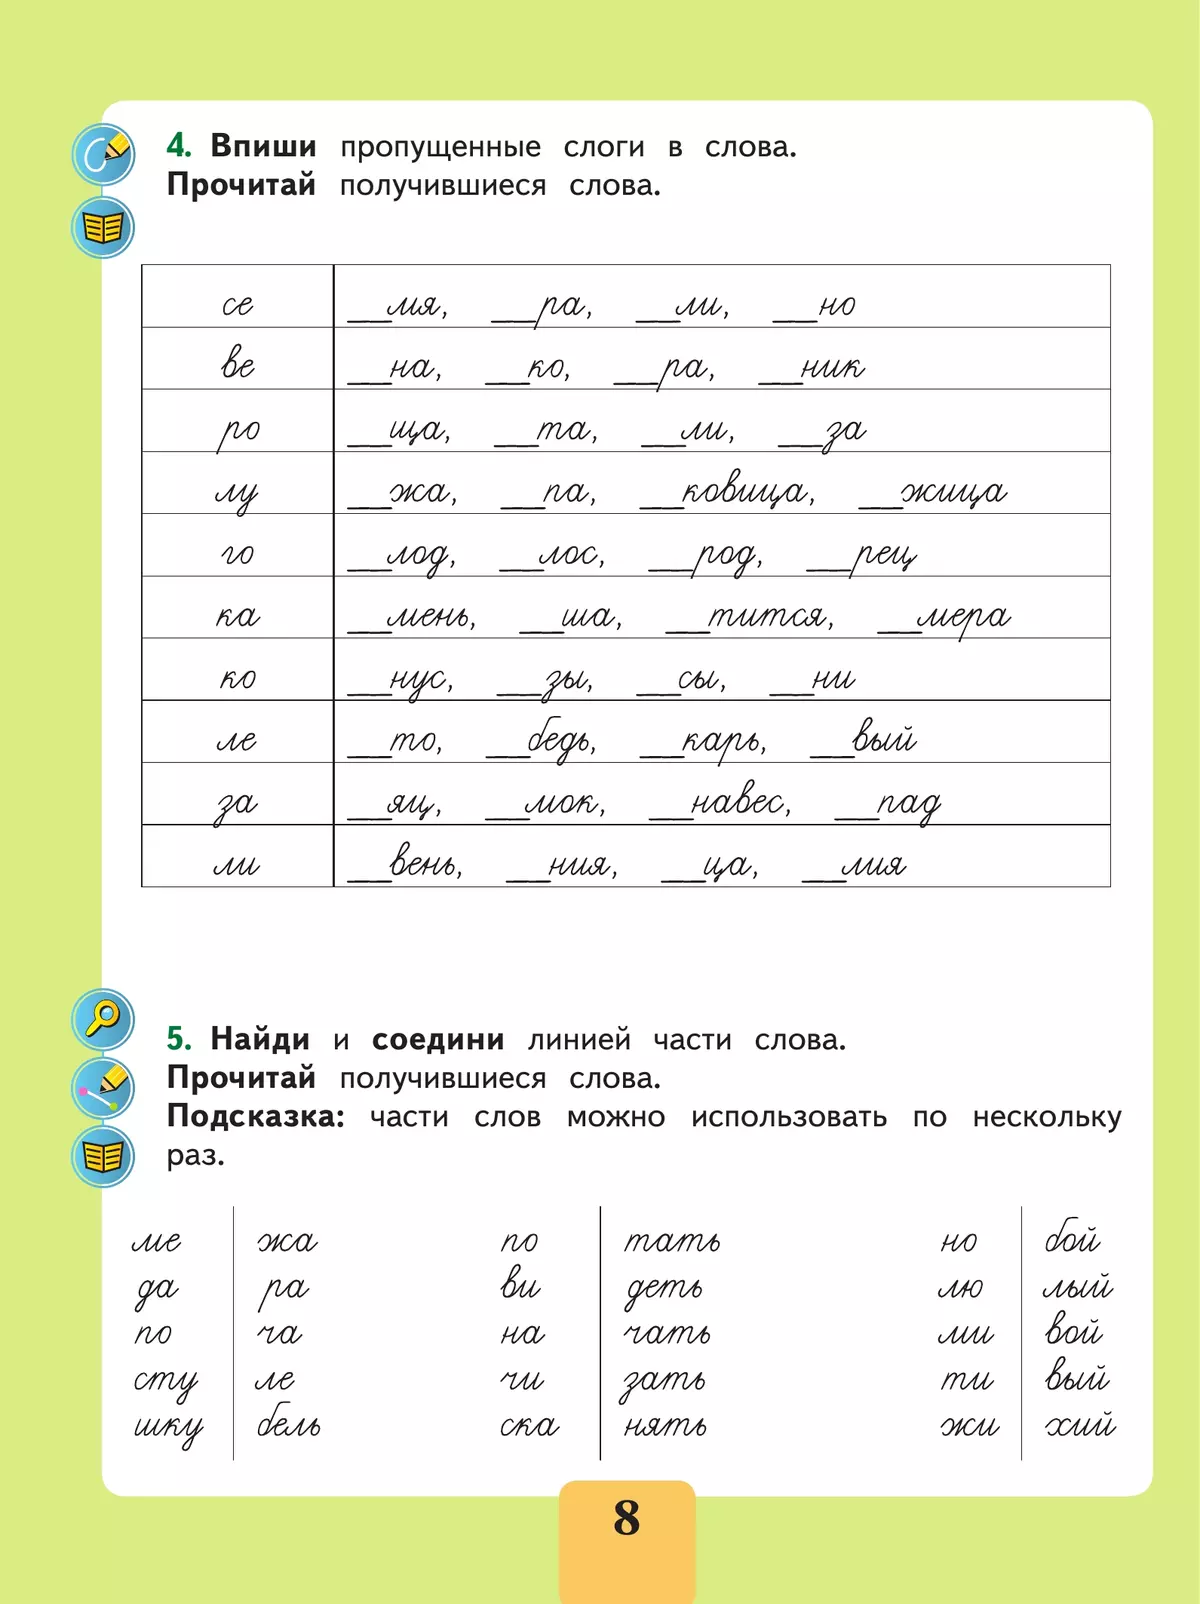 4. Впиши пропущенные слоги в слова.
Прочитай получившиеся слова.
се __мя, __ра, __ли, __но
ве __на, __ко, __ра, __ник
ро __ща, __та, __ли, __за
лу __жа, __па, __ковица, __жица
го __лод, __лос, __род, __рец
ка __мень, __ша, __тится, __мера
ко __нус, __зы, __сы, __ни
ле __то, __бедь, __карь, __вый
за __яц, __мок, __навес, __пад
ли __вень, __ния, __ца, __лия
5. Найди и соедини линией части слова.
Прочитай получившиеся слова.
Подсказка: части слов можно использовать по нескольку
раз.
ме жа по тать но бой
да ра ви деть лю лый
по ча на чать ми вой
сту ле чи зать ти вый
шку бель ска нять жи хий
8